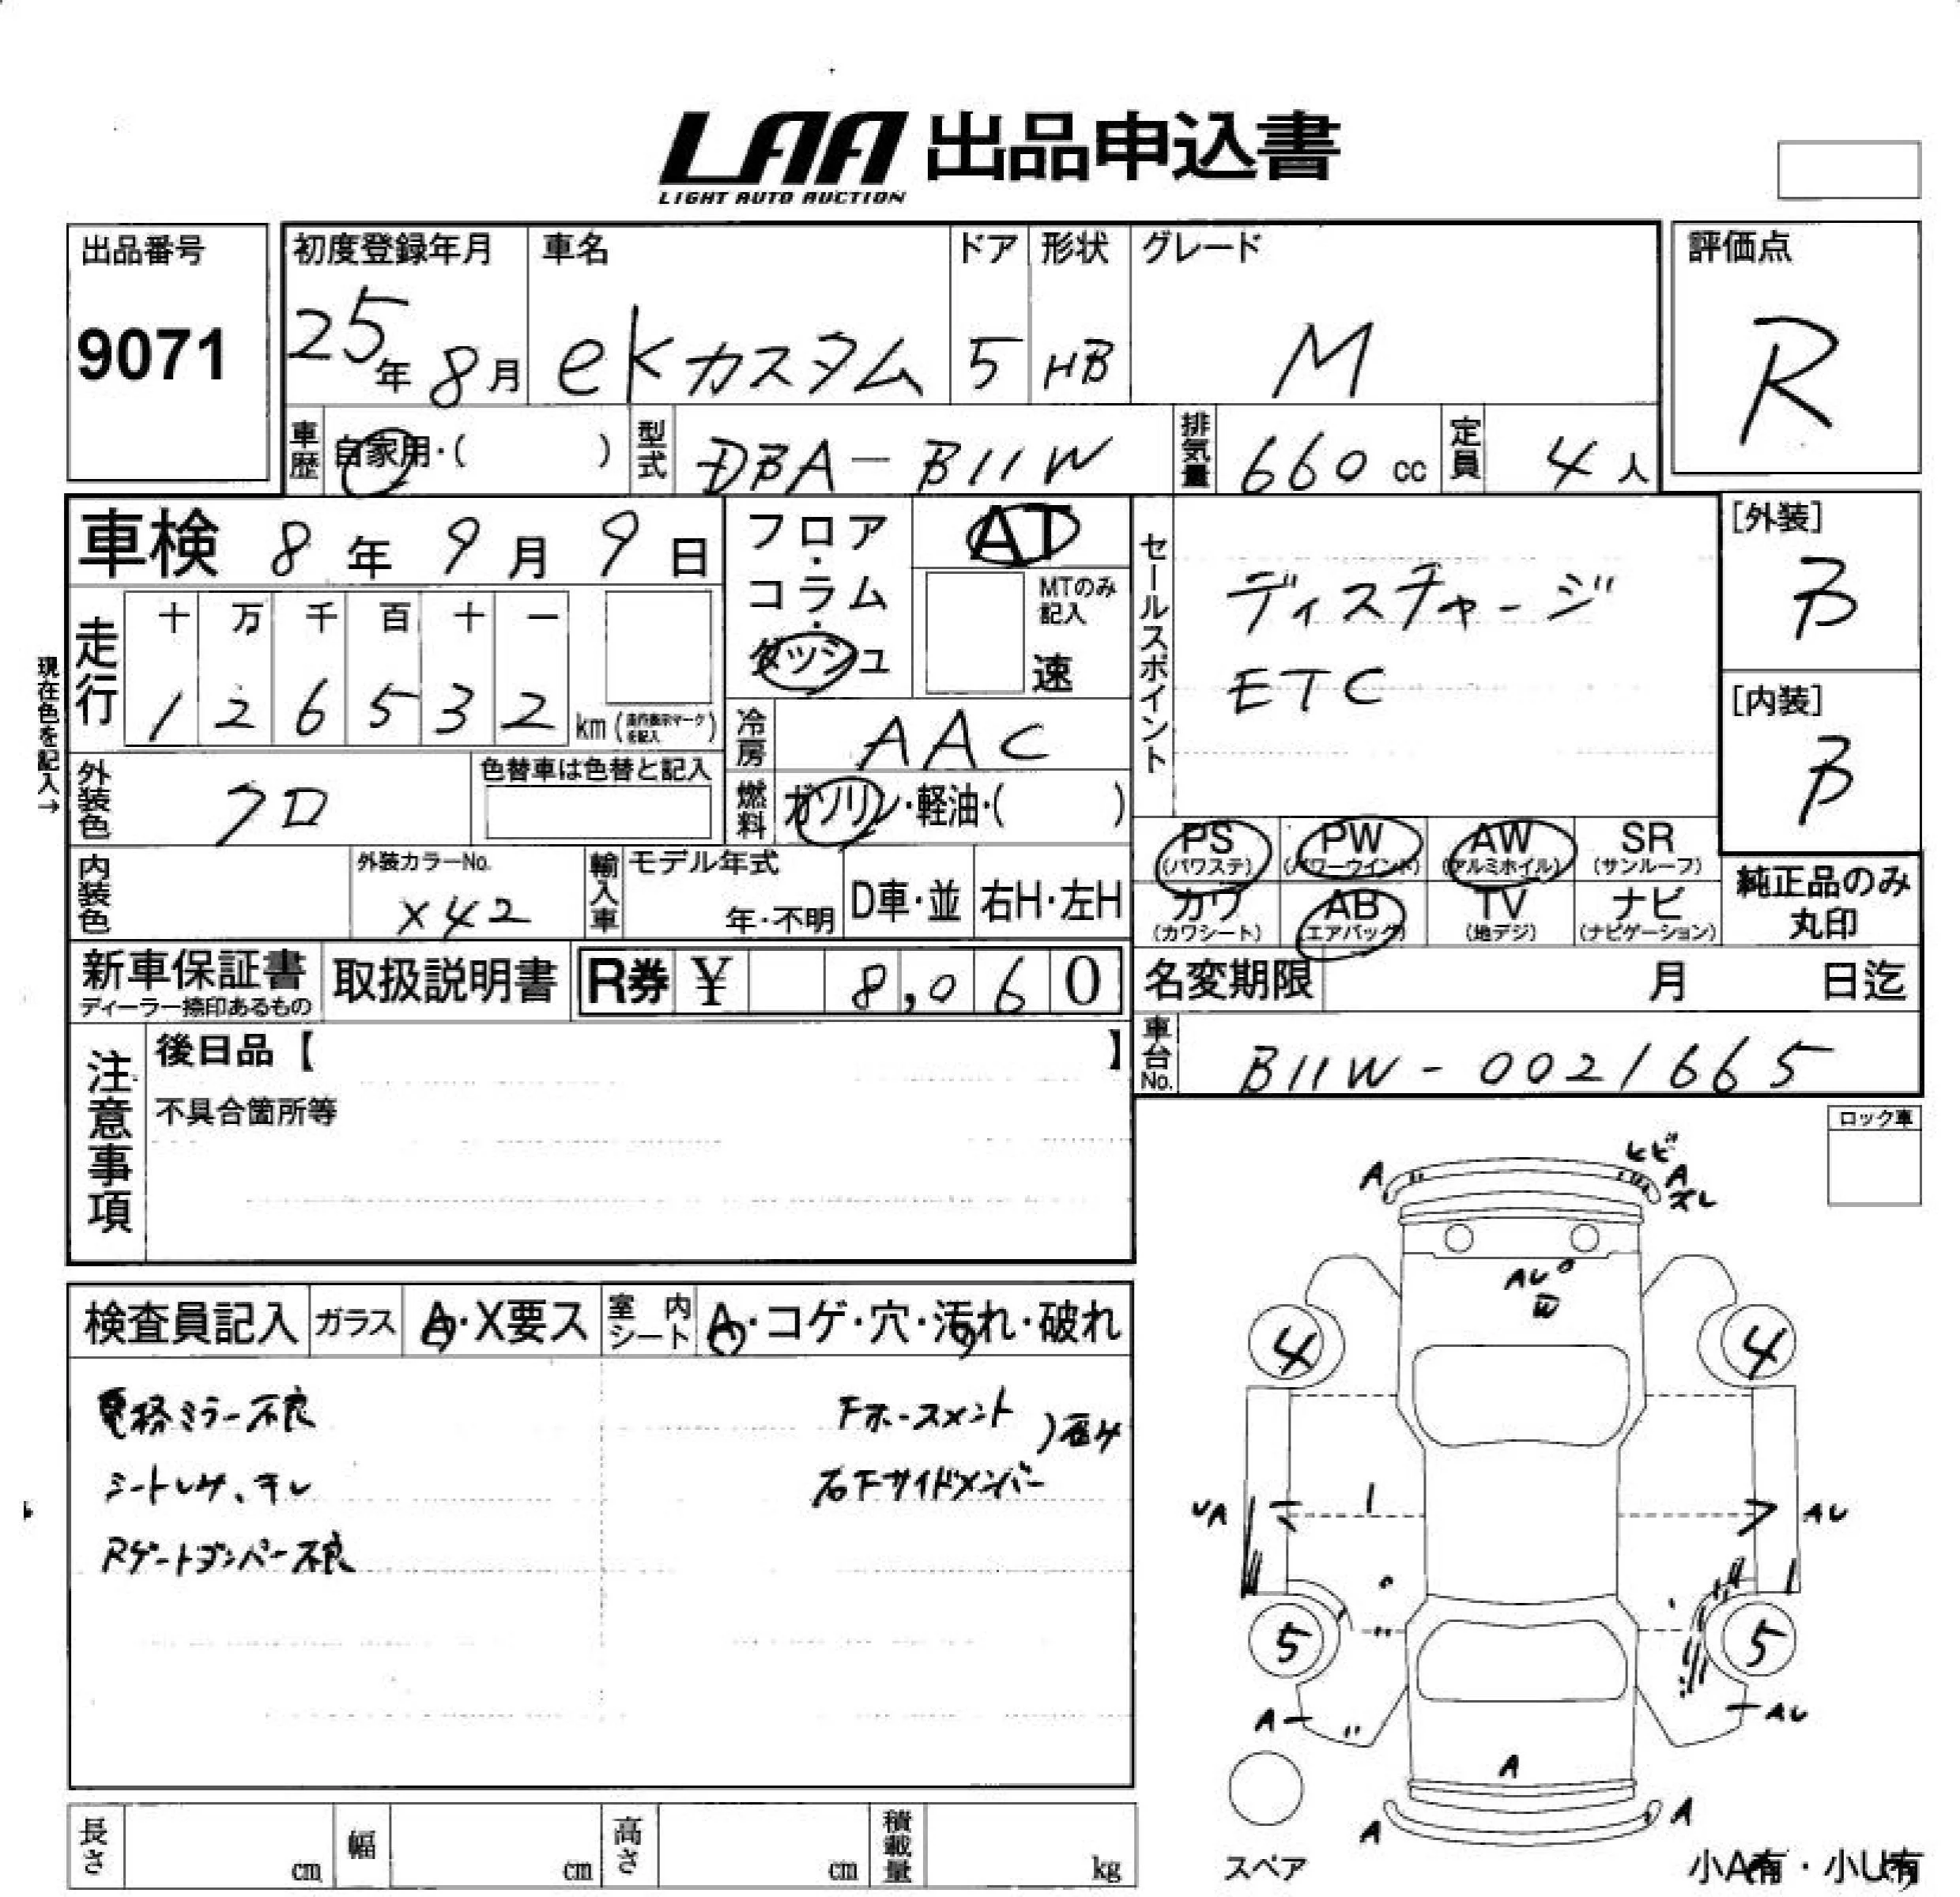 LAA 出品申込書
LIGHT AUTO AUCTION
出品番号
9071
初度登録年月
25年 8月
車名
eKカスタム
ドア
5
形状
HB
グレード
M
評価点
R
車歴 自家用・( )
型式 DBA-B11W
排気量 660 cc
定員 4人
車検 8年 9月 9日
フロア・コラム・ダッシュ
AT
MTのみ記入
速
セールスポイント
ディスチャージ
ETC
[外装]
B
[内装]
B
現在色を記入→
走行
十 万 千 百 十 一
1 2 6 5 3 2 km
冷房 AAC
燃料 ガソリン・軽油・( )
外装色 クロ
色替車は色替と記入
PS (パワステ)
PW (パワーウインド)
AW (アルミホイル)
SR (サンルーフ)
カワ (カワシート)
AB (エアバック)
TV (地デジ)
ナビ (ナビゲーション)
純正品のみ丸印
内装色
外装カラーNo.
X42
輸入車
モデル年式
年・不明
D車・並
右H・左H
新車保証書
ディーラー捺印あるもの
取扱説明書
R券 ¥ 8,060
名変期限 月 日迄
車台No. B11W-0021665
注意事項
後日品【 】
不具合箇所等
ロック車
検査員記入
ガラス
A・X要ス
室内シート
A・コゲ・穴・汚れ・破れ
電格ミラー不良
シートレザ、キレ
Rゲートダンパー不良
Fホースメント
右Fサイドメンバー
)歪み
A
ヒビ
A
ズレ
AU
W
4
4
UA
AU
5
5
A
AU
A
A
A
スペア
小A有・小U有
長さ cm
幅 cm
高さ cm
積載量 kg